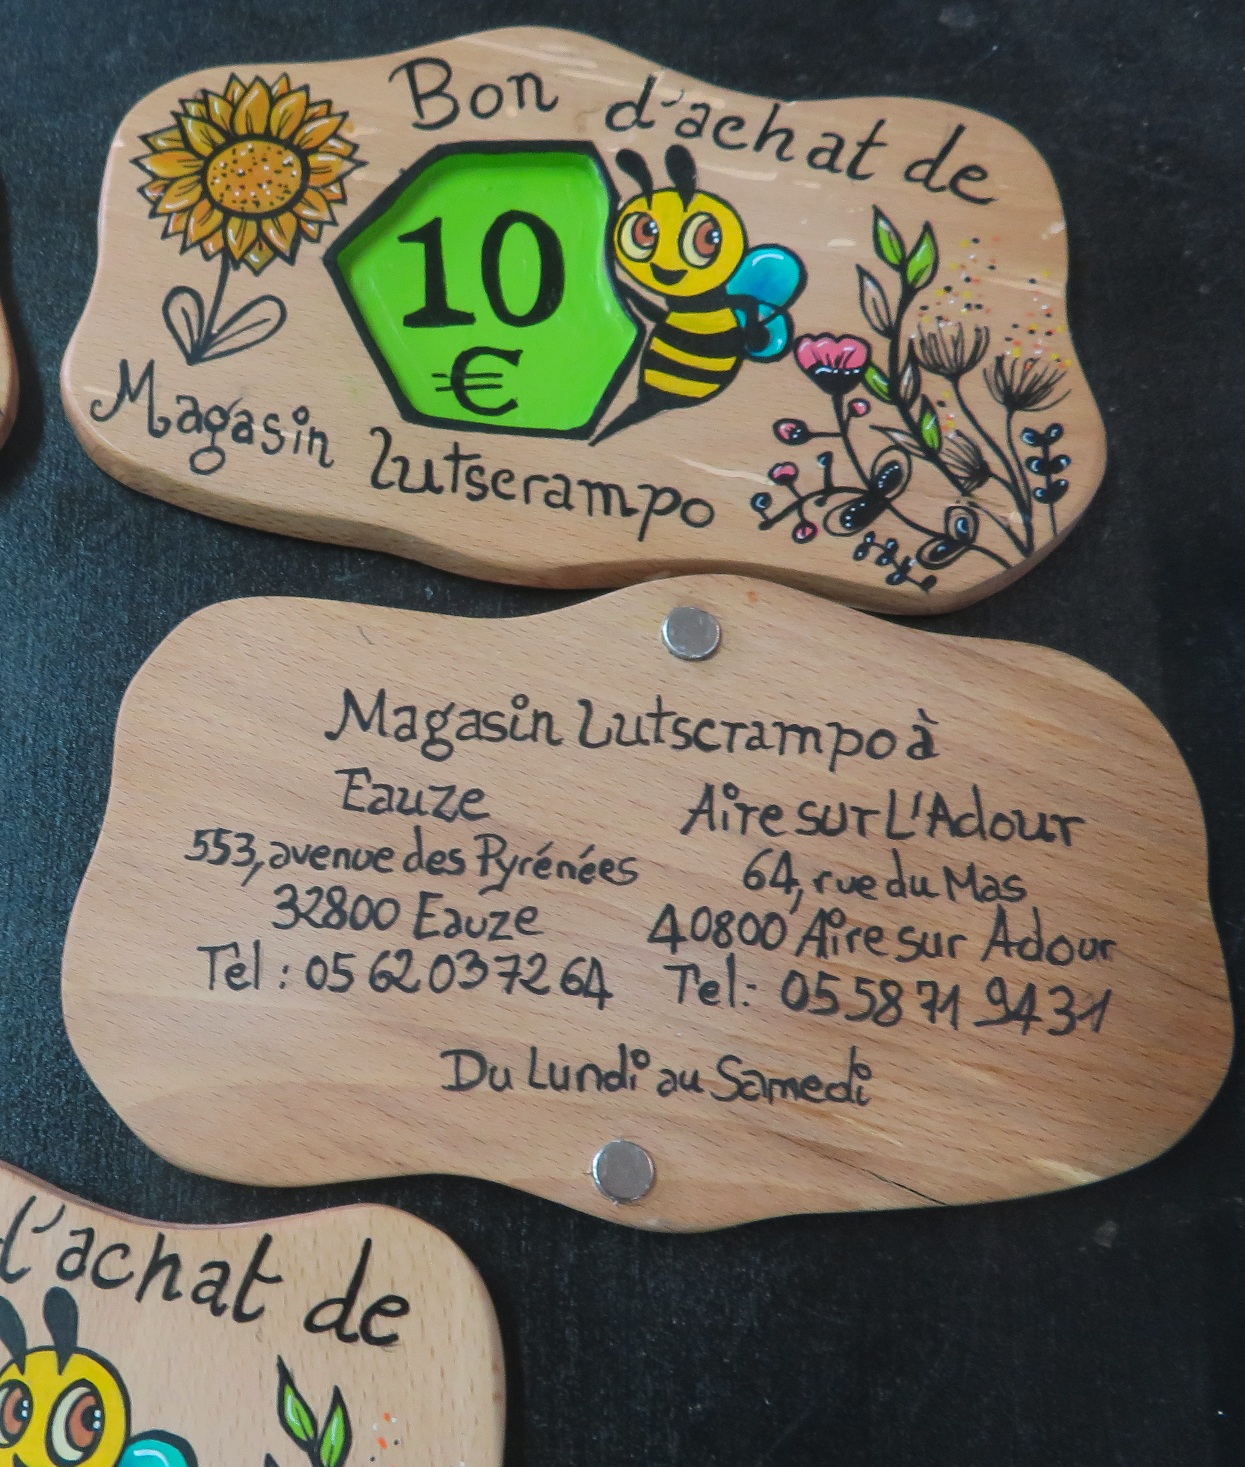 Bon d'achat de
10
€
Magasin Lutscrampo
Magasin Lutscrampo à
Eauze
553, avenue des Pyrénées
32800 Eauze
Tel : 05 62 03 72 64
Aire sur L'Adour
64, rue du Mas
40800 Aire sur Adour
Tel : 05 58 71 94 31
Du Lundi au Samedi
d'achat de